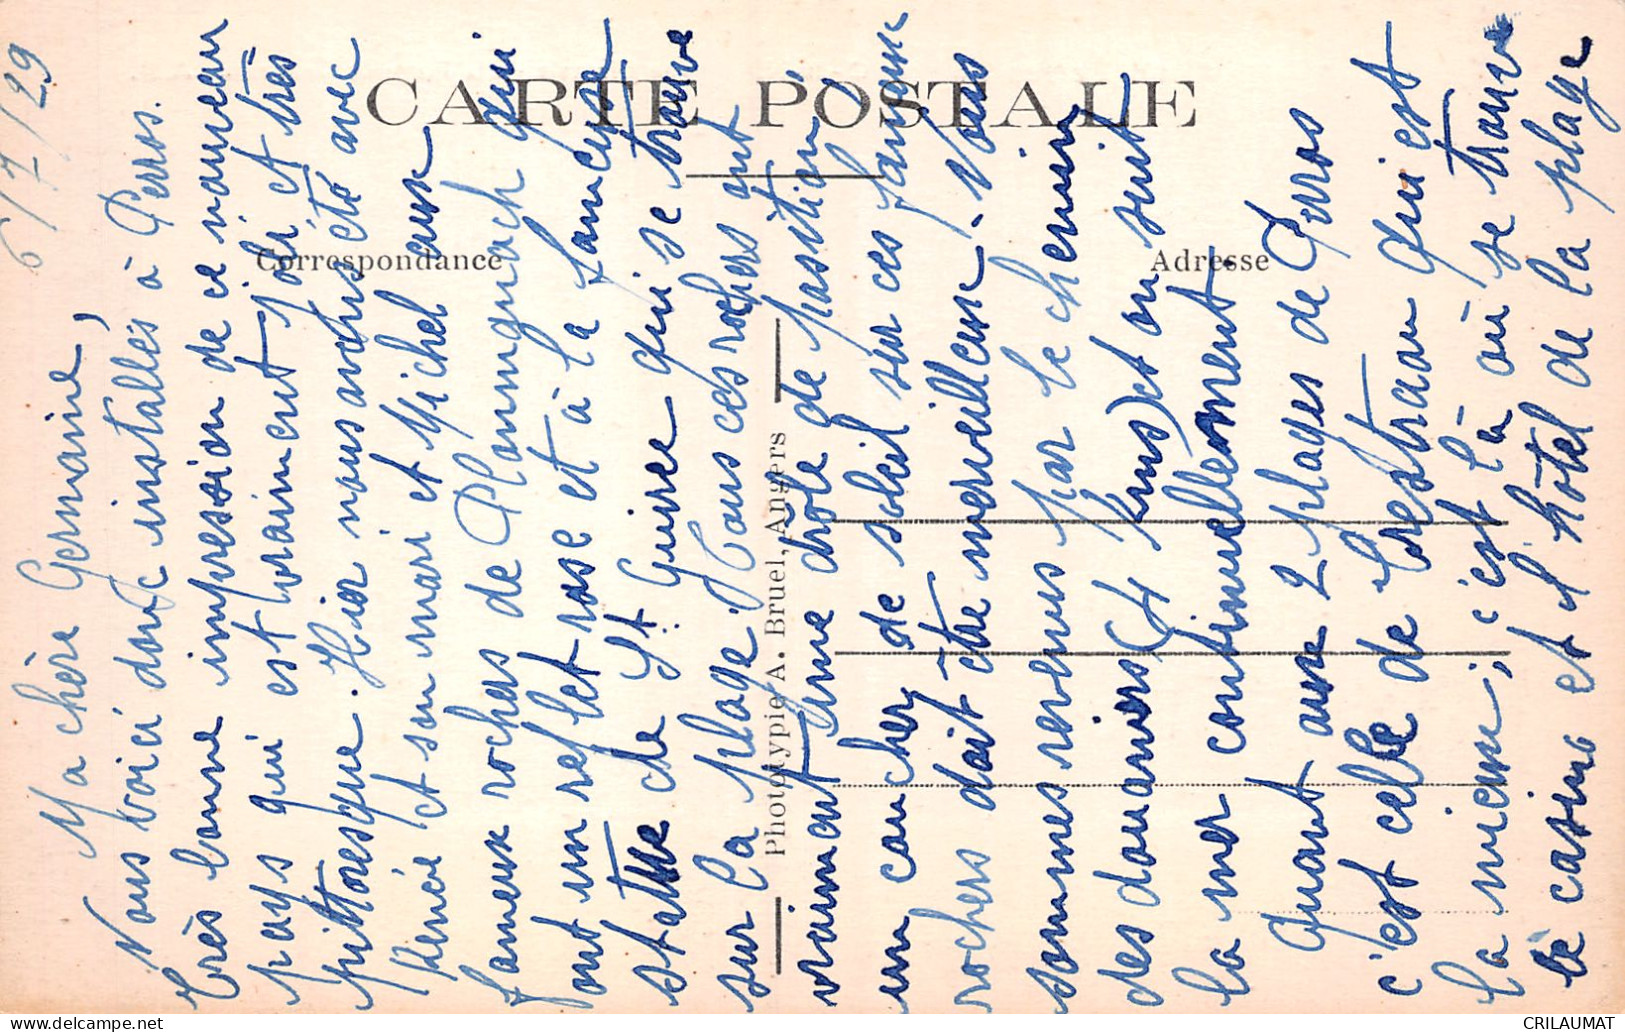 CARTE POSTALE
Correspondance
Adresse
Phototypie A. Bruel, Angers
6/7/29
Ma chère Germaine,
Nous voici donc installés à Perros.
Très bonne impression de ce nouveau
pays qui est vraiment joli et très
pittoresque. Hier nous avons été avec
Renée et son mari et Michel aux
fameux rochers de Ploumanach qui
ont un reflet rose et à la fameuse
statue de St Guirec qui se trouve
sur la plage. Tous ces rochers ont
vraiment une drôle de position,
un coucher de soleil sur ces fameux
rochers doit être merveilleux. Nous
sommes revenus par le chemin
des douaniers (4 kms) et on suit
la mer continuellement.
Quant aux 2 plages de Perros
c'est celle de Trestraou qui est
la mieux; c'est là où se trouve
le casino et l'hôtel de la plage
CRILAUMAT